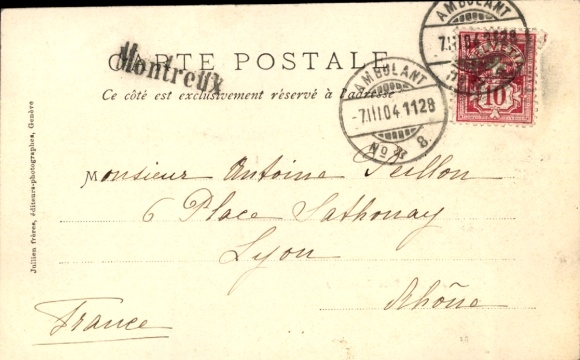 CARTE POSTALE
Montreux
Ce côté est exclusivement réservé à l'adresse
AMBULANT
-7.III.04.1128
No 8.
AMBULANT
7.III.04.1128
HELVETIA
10
Monsieur Antoine Teillon
6 Place Sathonay
Lyon
Rhône
France
Jullien frères, éditeurs-photographes, Genève